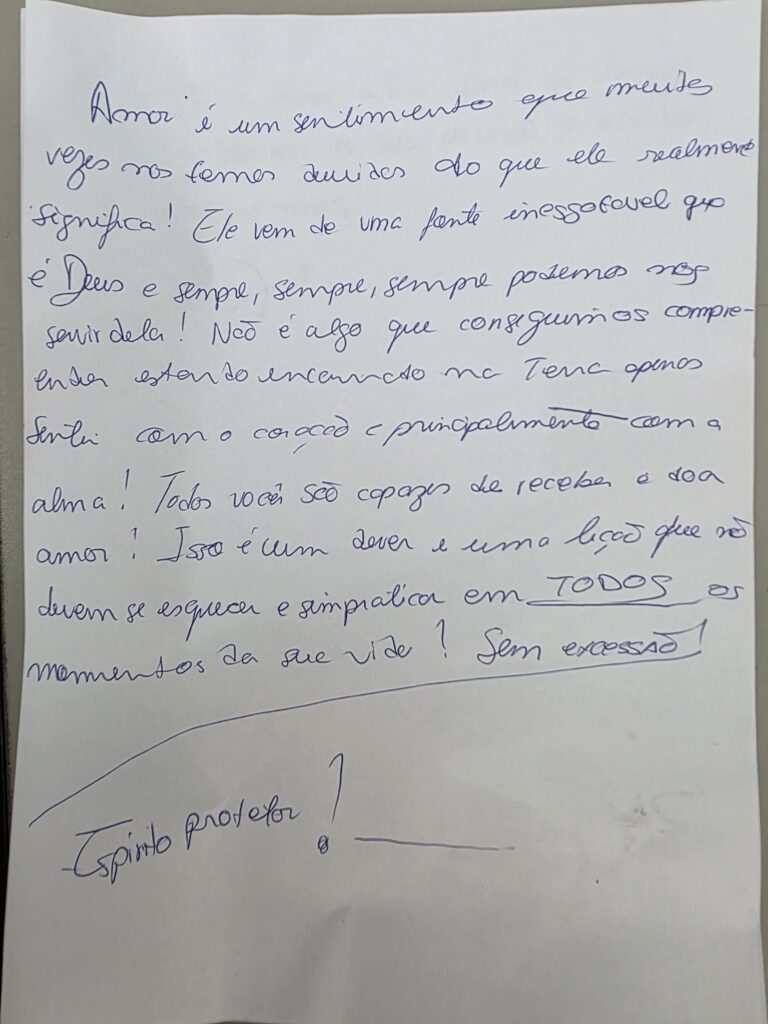 Amor é um sentimento que muitas
vezes nos temos duvidas do que ele realmente
significa! Ele vem de uma fonte inessotavel que
é Deus e sempre, sempre, sempre podemos nos
servir dela! Não é algo que conseguimos compre-
ender estando encarnado na Terra apenas
sentir com o coração e principalmente com a
alma! Todos vocês são capazes de receber e doar
amor! Isso é um dever e uma lição que não
devem se esquecer e sim praticar em TODOS os
momentos da sua vida! Sem excessão!
Espirito protetor!